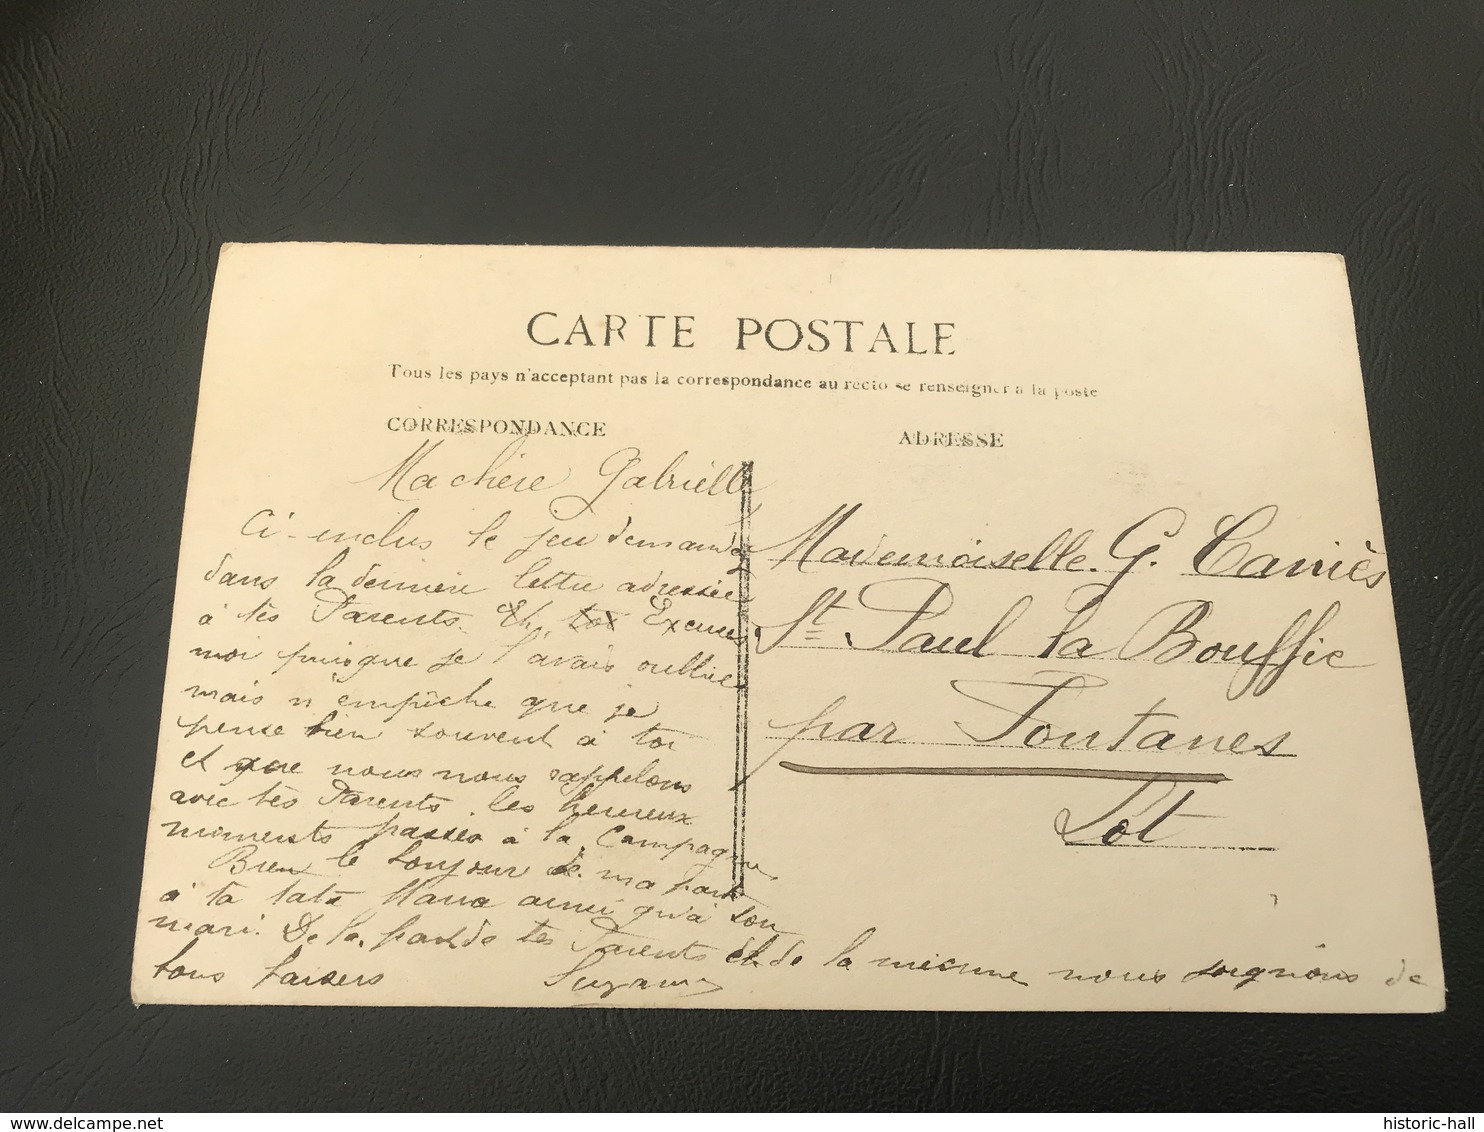 CARTE POSTALE
Tous les pays n'acceptant pas la correspondance au recto se renseigner à la poste
CORRESPONDANCE
ADRESSE
Ma chère Gabrielle
Ci-inclus le jeu demandé
dans la dernière lettre adressée
à tes Parents. Et, toi Excuses
moi puisque je l'avais oublié
mais n'empêche que je
pense bien souvent à toi
et que nous nous rappelons
avec tes Parents les heureux
moments passés à la Campagne
Bien le bonjour de ma part
à ta tata Maria ainsi qu'à son
mari. De la part de tes Parents et de la mienne nous de
bons baisers Suzanne
Mademoiselle. G. Carriès
St Paul la Bouffie
par Fontanes
Lot
historic-hall